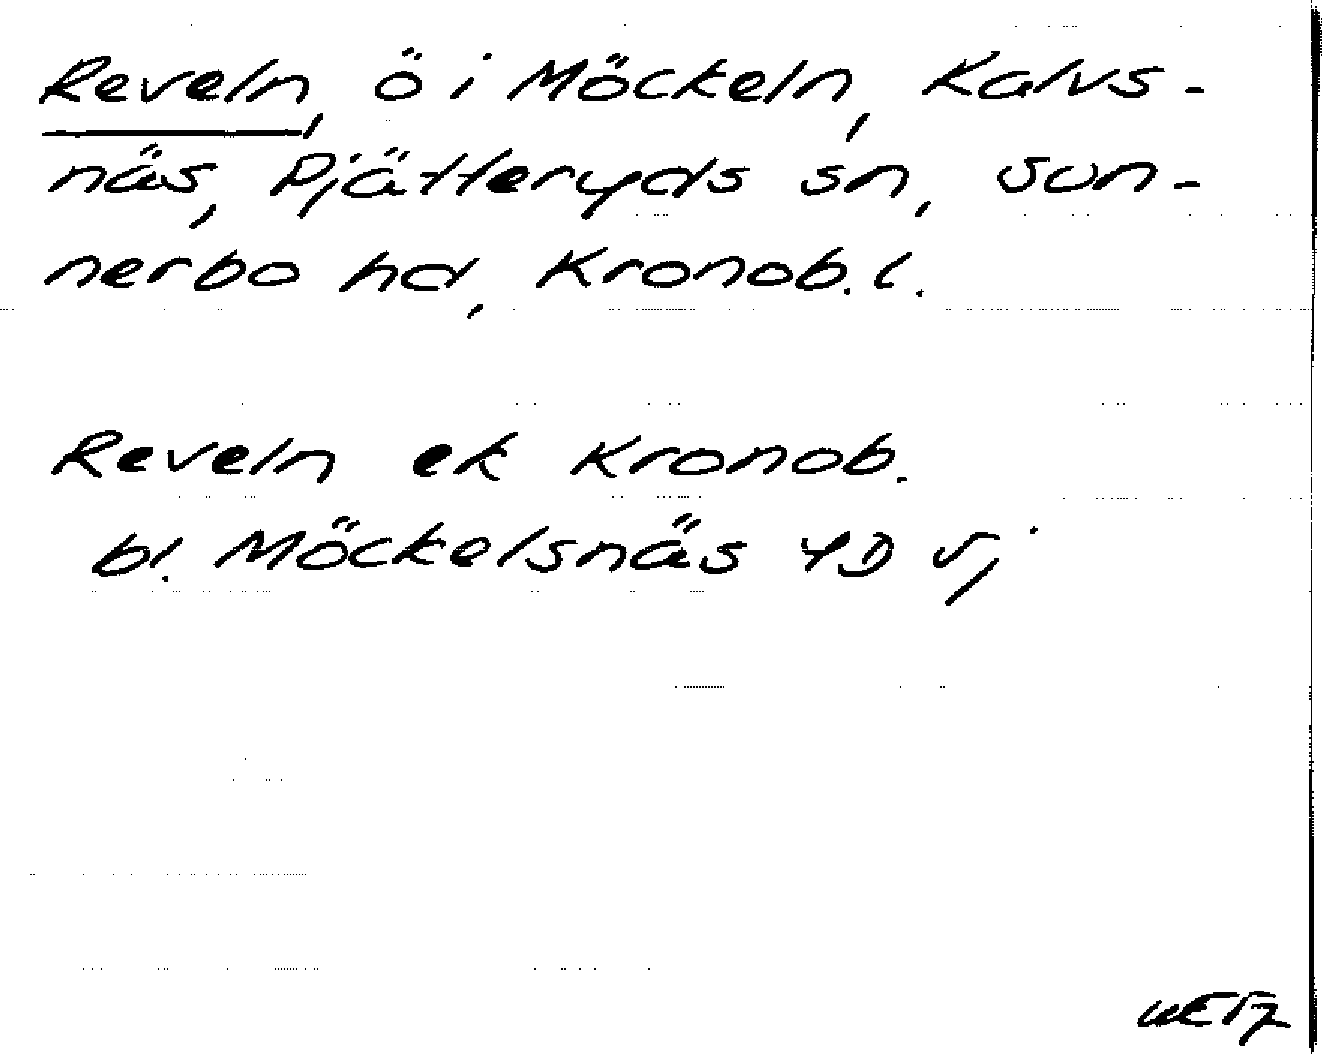 Reveln, ö i Möckeln, Kalvs-
näs, Pjätteryds sn, Sun-
nerbo hd, Kronob. l.
Reveln ek Kronob.
bl. Möckelsnäs 4D